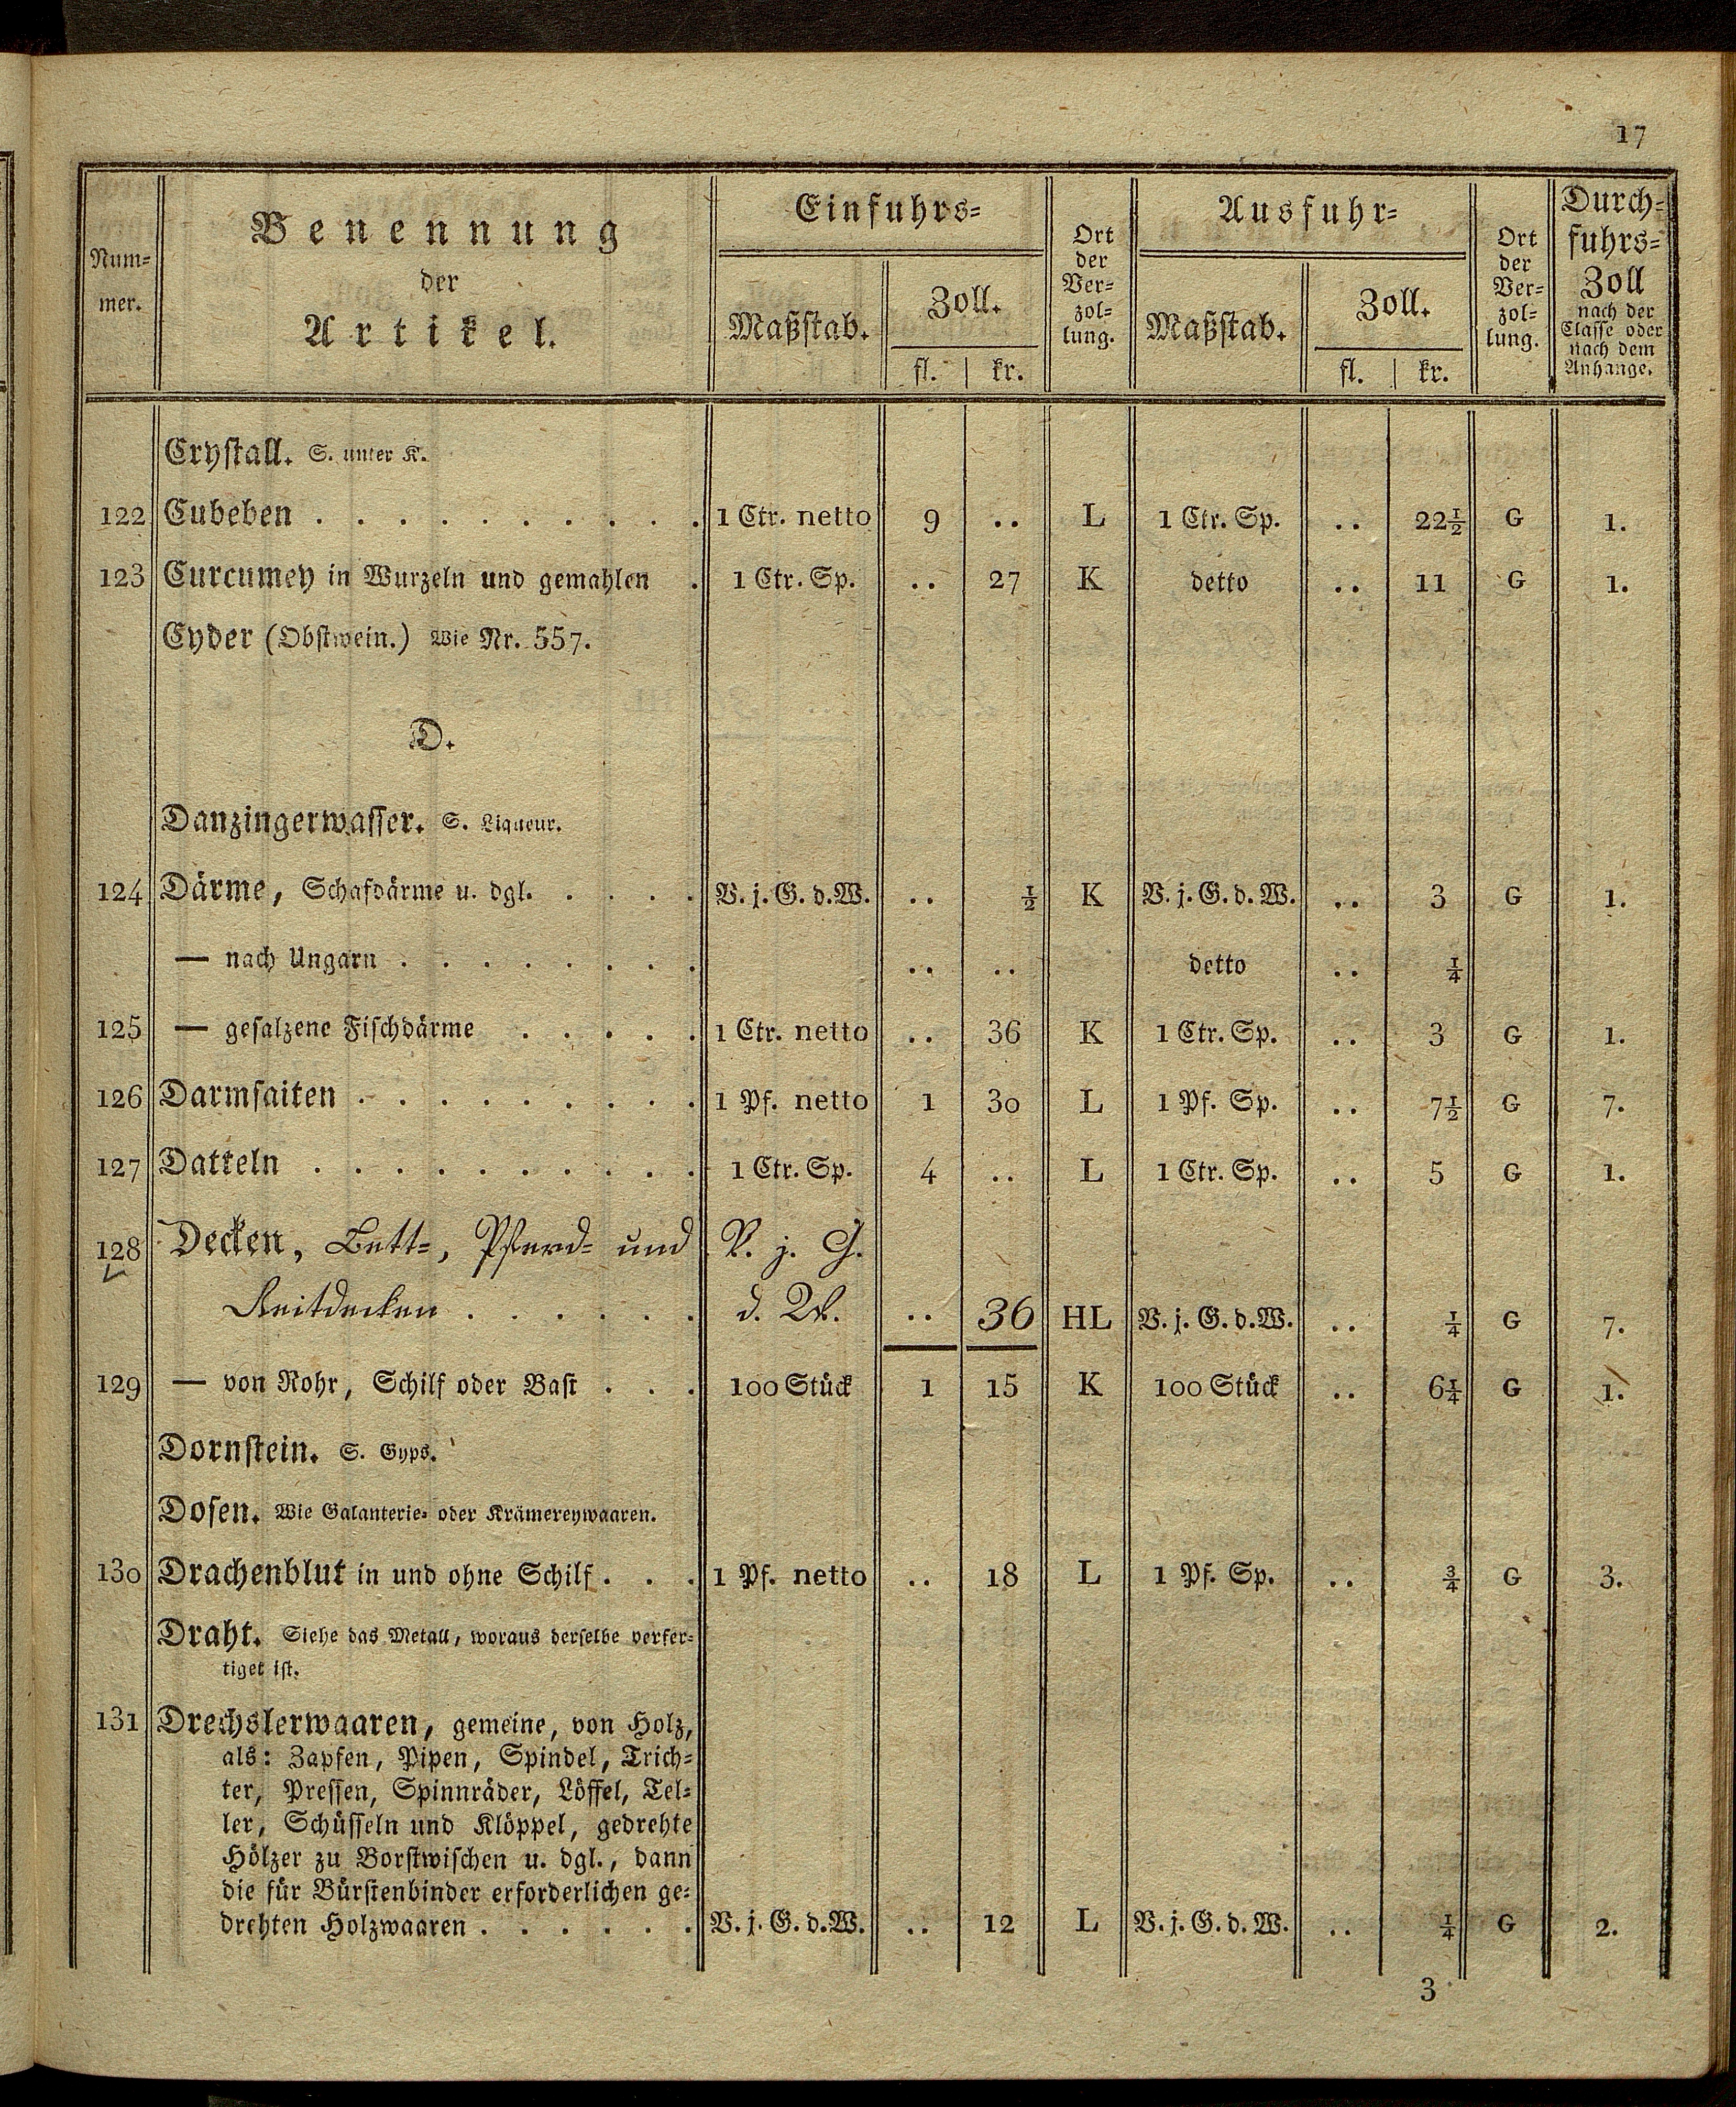 17
Num-
mer.
Benennung
der
Artikel.
Einfuhrs-
Maßstab.
Zoll.
fl. | kr.
Ort
der
Ver-
zol-
lung.
Ausfuhr-
Maßstab.
Zoll.
fl. | kr.
Ort
der
Ver-
zol-
lung.
Durch-
fuhrs-
Zoll
nach der
Classe oder
nach dem
Anhange.
Crystall. S. unter K.
122 Cubeben . . . . . . . . . . 1 Ctr. netto 9 .. L 1 Ctr. Sp. .. 22½ G 1.
123 Curcumey in Wurzeln und gemahlen . 1 Ctr. Sp. .. 27 K detto .. 11 G 1.
Cyder (Obstwein.) Wie Nr. 557.
D.
Danzingerwasser. S. Liqueur.
124 Därme, Schafdärme u. dgl. . . . . V. j. G. d. W. .. ½ K V. j. G. d. W. .. 3 G 1.
— nach Ungarn . . . . . . . . .. .. detto .. ¼
125 — gesalzene Fischdärme . . . . . 1 Ctr. netto .. 36 K 1 Ctr. Sp. .. 3 G 1.
126 Darmsaiten . . . . . . . . . 1 Pf. netto 1 30 L 1 Pf. Sp. .. 7½ G 7.
127 Datteln . . . . . . . . . . 1 Ctr. Sp. 4 .. L 1 Ctr. Sp. .. 5 G 1.
128 Decken, Bett-, Pferd- und V. j. G.
Reitdecken . . . . . . d. W. .. 36 HL V. j. G. d. W. .. ¼ G 7.
129 — von Rohr, Schilf oder Bast . . . 100 Stück 1 15 K 100 Stück .. 6¼ G 1.
Dornstein. S. Gyps.
Dosen. Wie Galanterie- oder Krämereywaaren.
130 Drachenblut in und ohne Schilf . . . 1 Pf. netto .. 18 L 1 Pf. Sp. .. ¾ G 3.
Draht. Siehe das Metall, woraus derselbe verfer-
tiget ist.
131 Drechslerwaaren, gemeine, von Holz,
als: Zapfen, Pipen, Spindel, Trich-
ter, Pressen, Spinnräder, Löffel, Tel-
ler, Schüsseln und Klöppel, gedrehte
Hölzer zu Borstwischen u. dgl., dann
die für Bürstenbinder erforderlichen ge-
drehten Holzwaaren . . . . . . V. j. G. d. W. .. 12 L V. j. G. d. W. .. ¼ G 2.
3